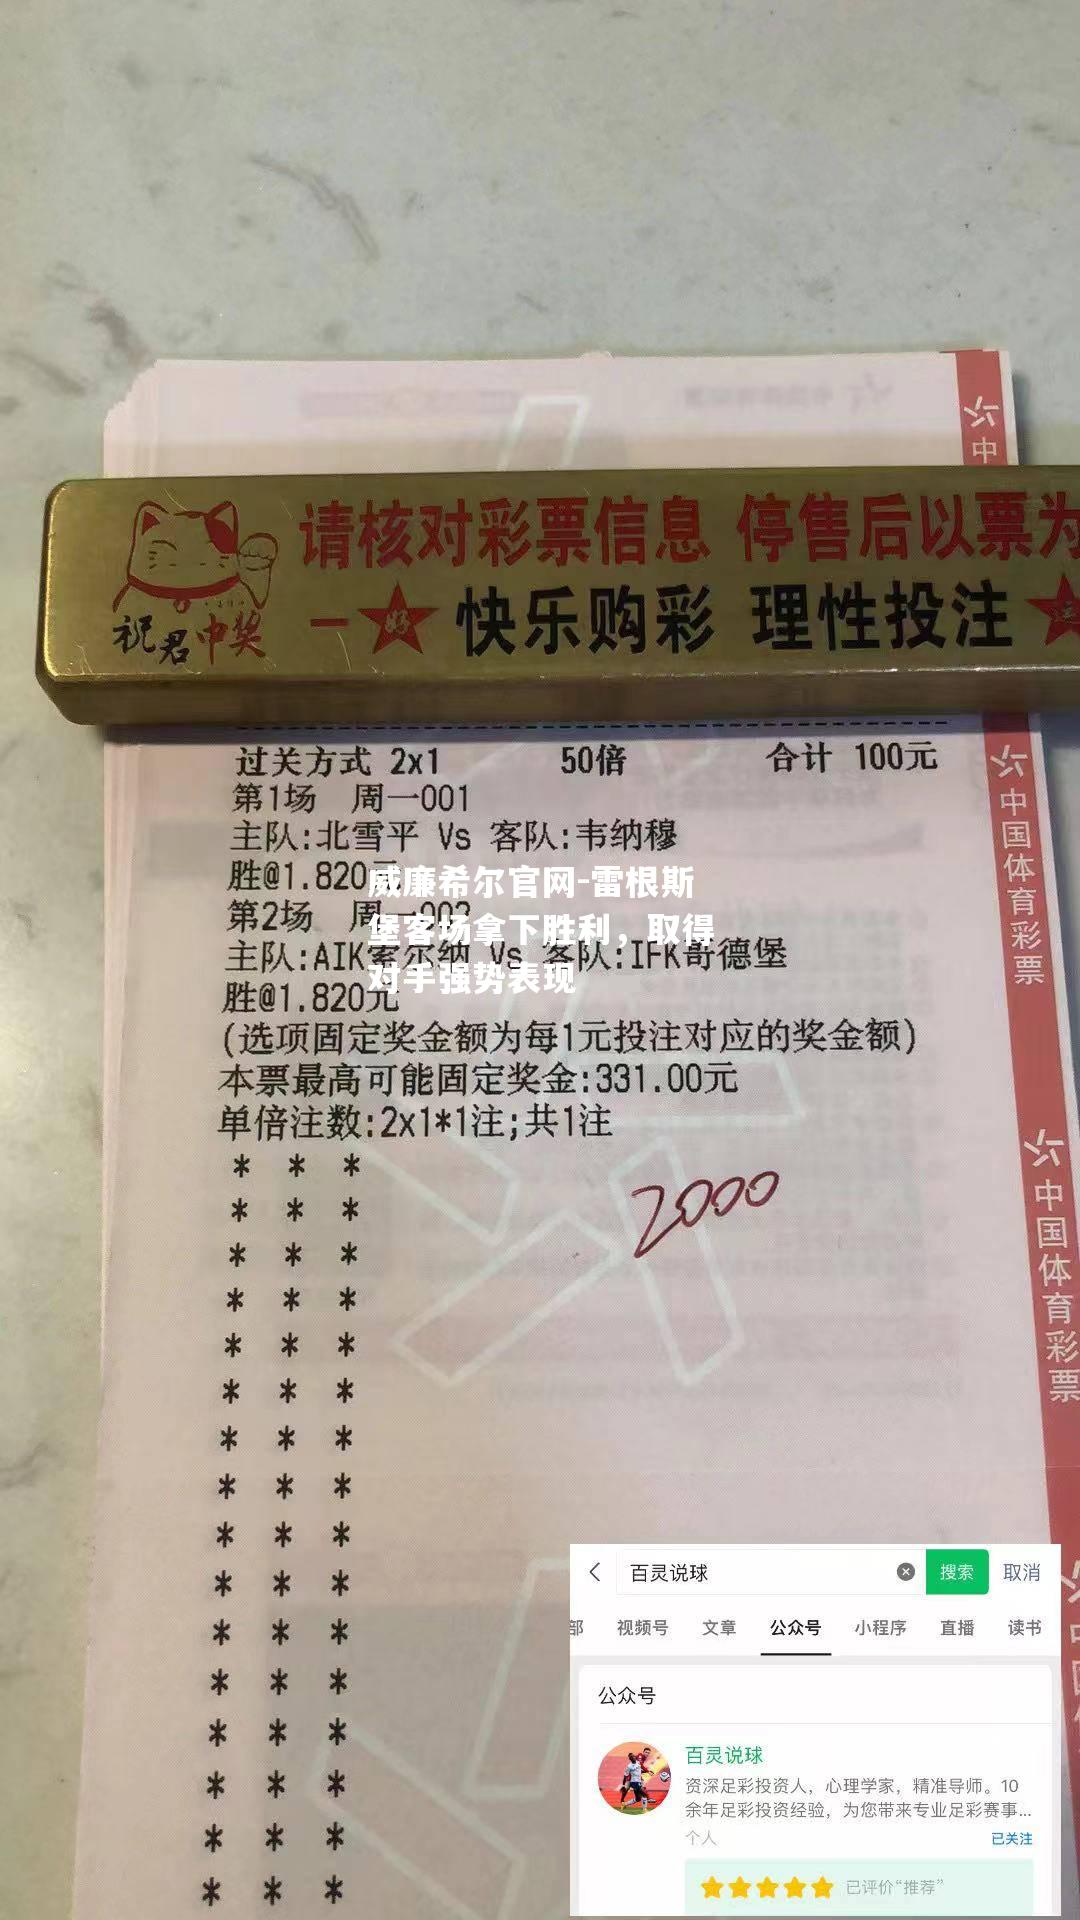 中
请核对彩票信息 停售后以票为
祝君中奖
一好 快乐购彩 理性投注 运
过关方式 2x1 50倍 合计 100元
第1场 周一001
主队:北雪平 Vs 客队:韦纳穆
胜@1.820元
第2场 周一002
主队:AIK索尔纳 Vs 客队:IFK哥德堡
胜@1.820元
(选项固定奖金额为每1元投注对应的奖金额)
本票最高可能固定奖金:331.00元
单倍注数:2x1*1注;共1注
威廉希尔官网-雷根斯
堡客场拿下胜利，取得
对手强势表现
中国体育彩票
中国体育彩票
2000
* * *
* * *
* * *
* * *
* * *
* * *
* * *
* * *
* * *
* * *
* * *
* * *
* * *
* * *
* * *
* * *
百灵说球 搜索 取消
部 视频号 文章 公众号 小程序 直播 读书
公众号
百灵说球
资深足彩投资人，心理学家，精准导师。10
余年足彩投资经验，为您带来专业足彩赛事...
个人 已关注
已评价“推荐”